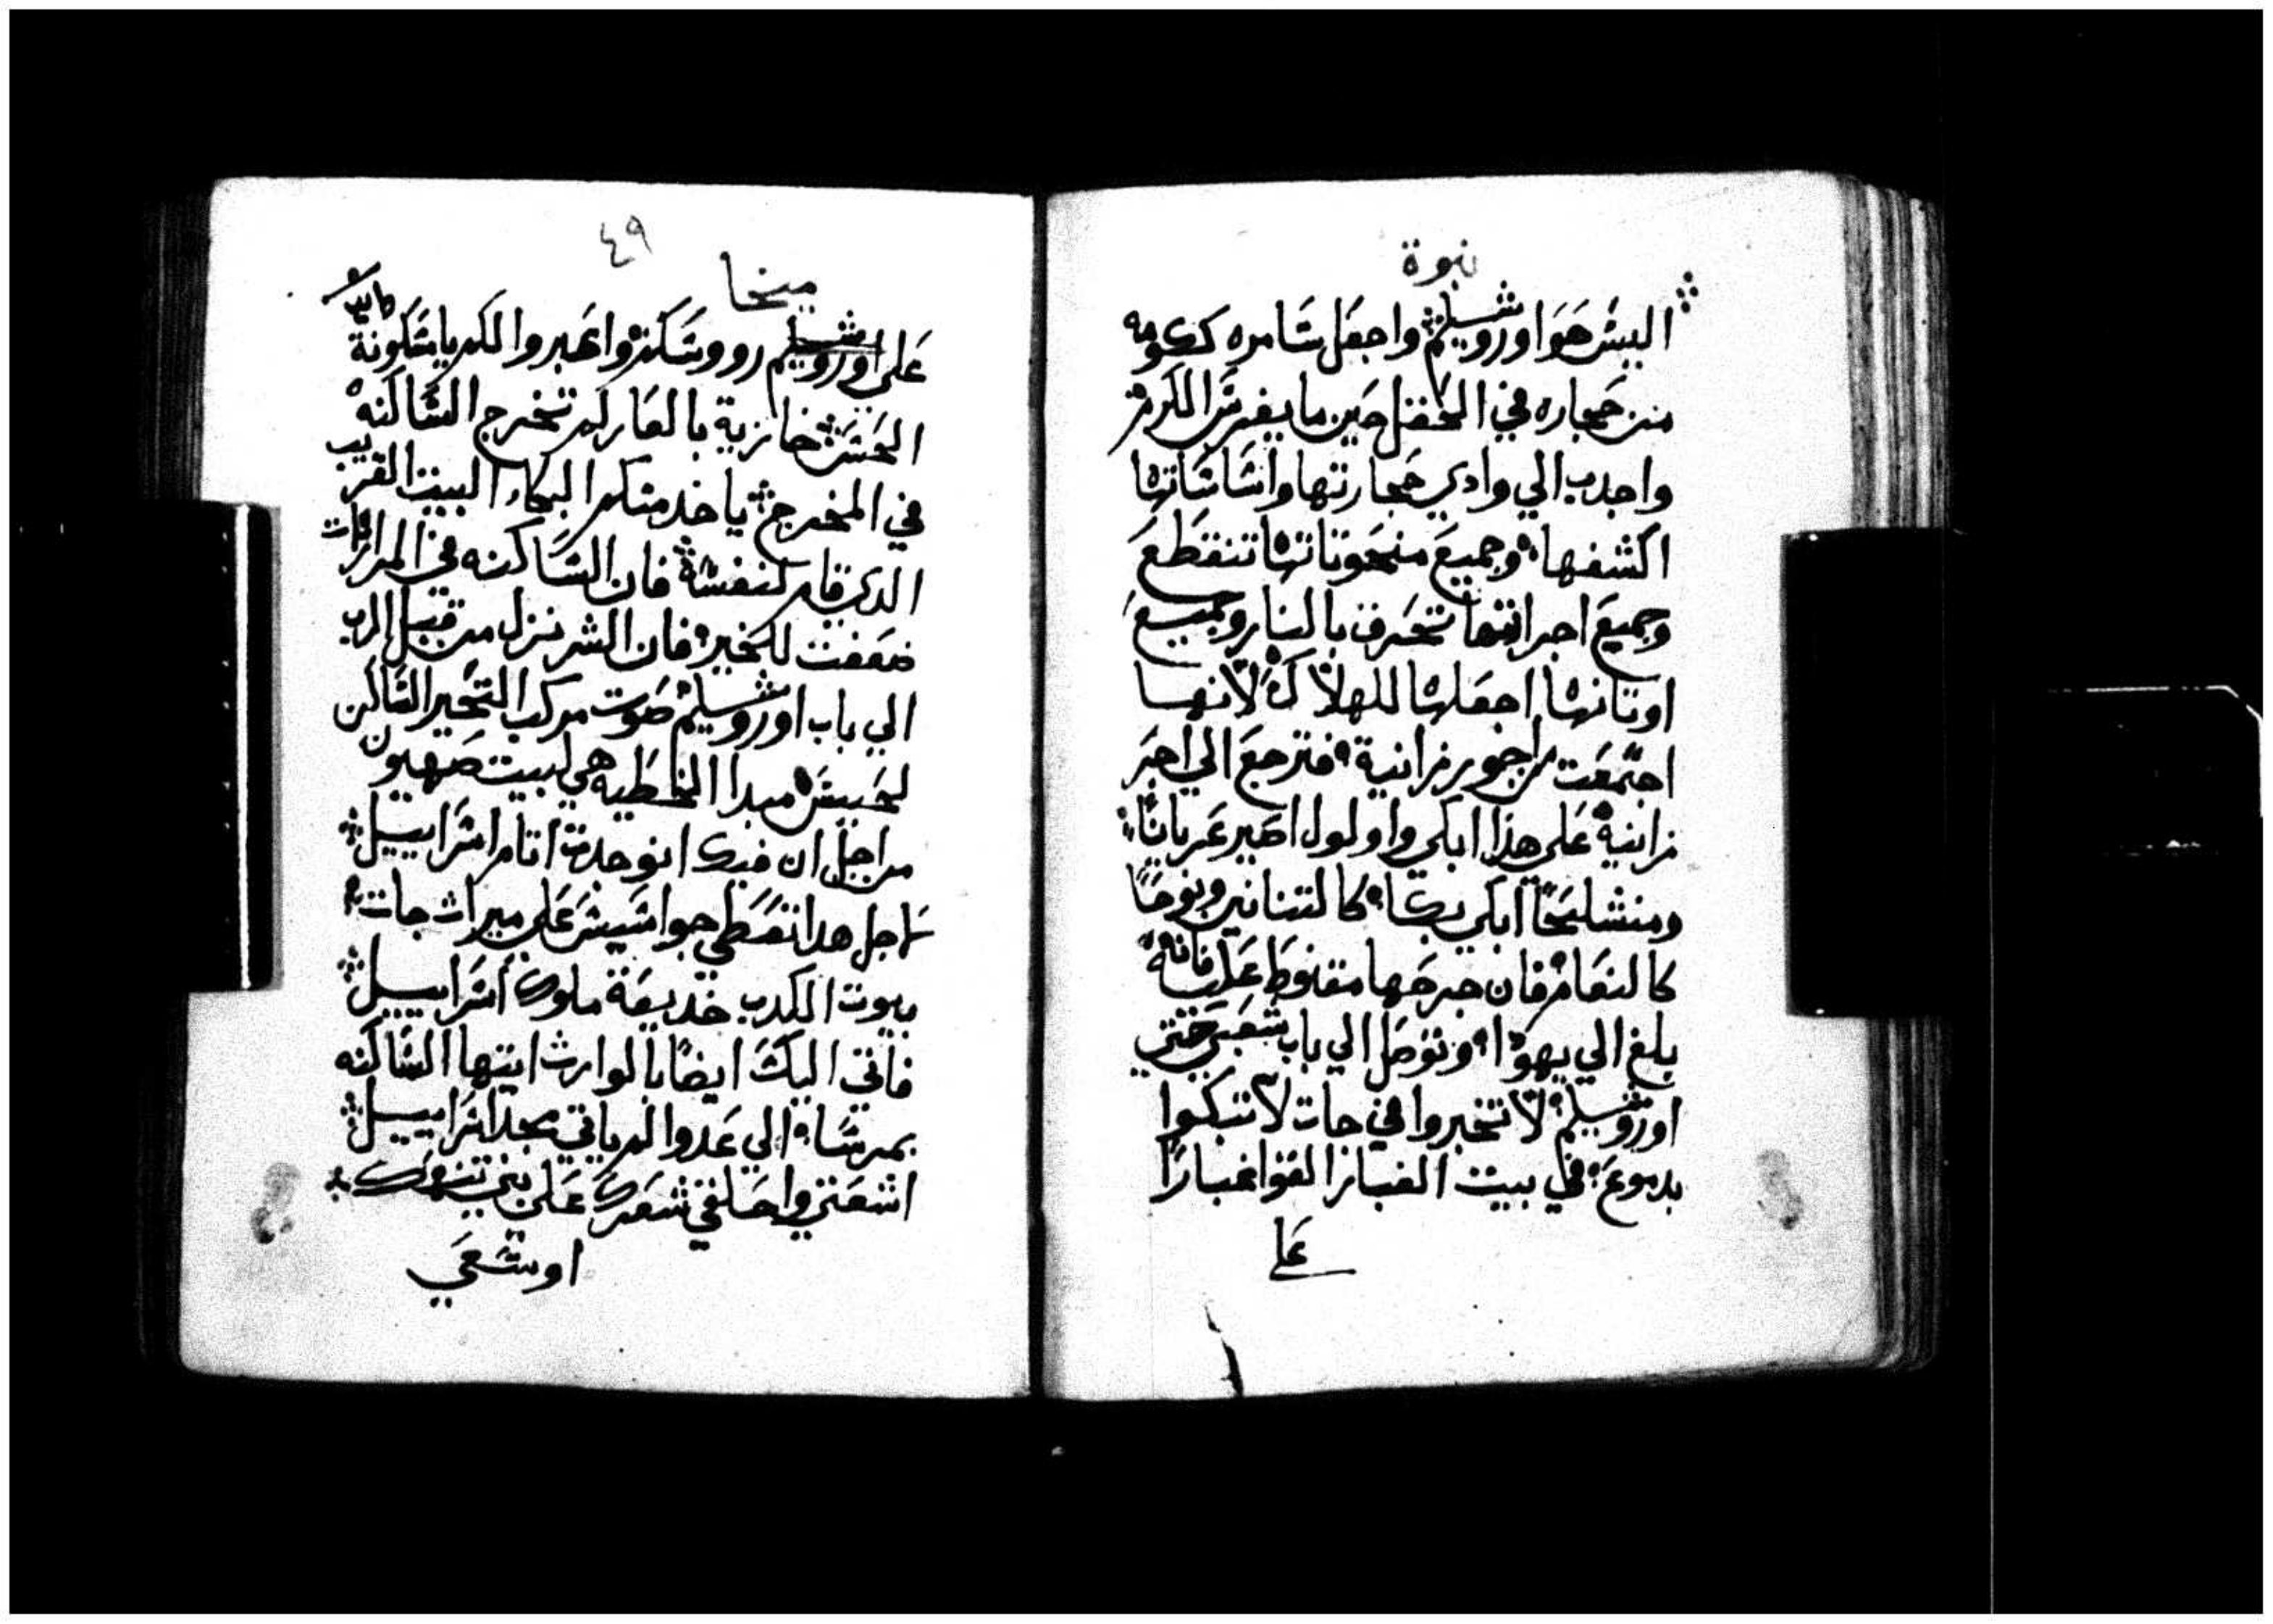 نبوة
اليس هوا اوروشليم واجعل سامره ككومه
من حجاره في الحقل حين ما يغرس الكرم
واجدب الي وادي حجارتها واساساتها
اكشفها وجميع منحوتاتها تنقطع
وجميع اجراتها تحرق بالنار وجميع
اوتانها اجعلها للهلاك لانها
اجتمعت من اجور زانية فترجع الي اجر
زانية علي هذا ابكي واولول اصير عريانا
ومنشلحا ابكي بكا كالتنانين ونوحا
كالنعام فان جرحها مقنوط عليه فانه
بلغ الي يهودا وتوصل الي باب شعبي حتي
اوروشليم لا تخبروا في جات لا تبكوا
بدموع في بيت الغبار القوا غبارا
علي
٤٩
ميخا
علي اوروشليم وسكنوا اعبروا لكم يا سكونة
الحسن خازية بالعار لم تخرج الساكنه
في المخرج ياخد منكم البكاء البيت القريب
الدي قام لنفسه فان الساكنه في المرارات
ضعفت للخير فان الشر نزل من قبل الرب
الي باب اوروشليم صوت مركب التحير الساكن
لحيس مبدا الخطيه هي لبيت صهيون
من اجل ان فيك انوجدت اتام اسراييل
من اجل هدا تقطي جواسيس علي ميراث جات
بيوت الكدب خديعة ملوك اسراييل
فاتي اليك ايضا بالوارث ايتها الساكنه
بمرسا الي عدولام ياتي مجد اسراييل
اشعتي واحلقي شعرك علي بني تنعمك
اوسعي